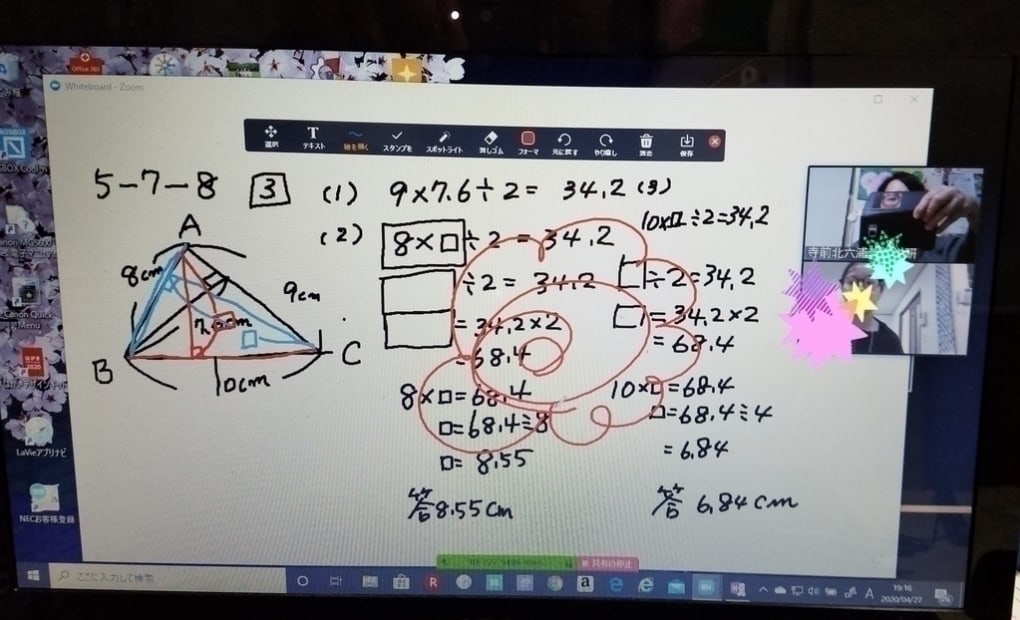 Office 365
Whiteboard - Zoom
選択
テキスト
絵を描く
スタンプを
スポットライト
消しゴム
フォーマ
元に戻す
やり直し
消去
保存
5-7-8 3 (1) 9×7.6÷2= 34.2 (3)
10×□÷2=34.2
(2) 8×□÷2=34.2
÷2=34.2
=34.2×2
=68.4
8×□=68.4
□=68.4÷8
□=8.55
答8.55cm
□÷2=34.2
□=34.2×2
=68.4
10×□=68.4
□=68.4÷4
=6.84
答 6.84cm
A
8cm
9cm
B
C
10cm
Canon Quick Menu
はがき
2020
LaVieアプリナビ
NECお客様登録
寺前北六浦
共有の停止
ここに入力して検索
A
19:16
2020/04/27